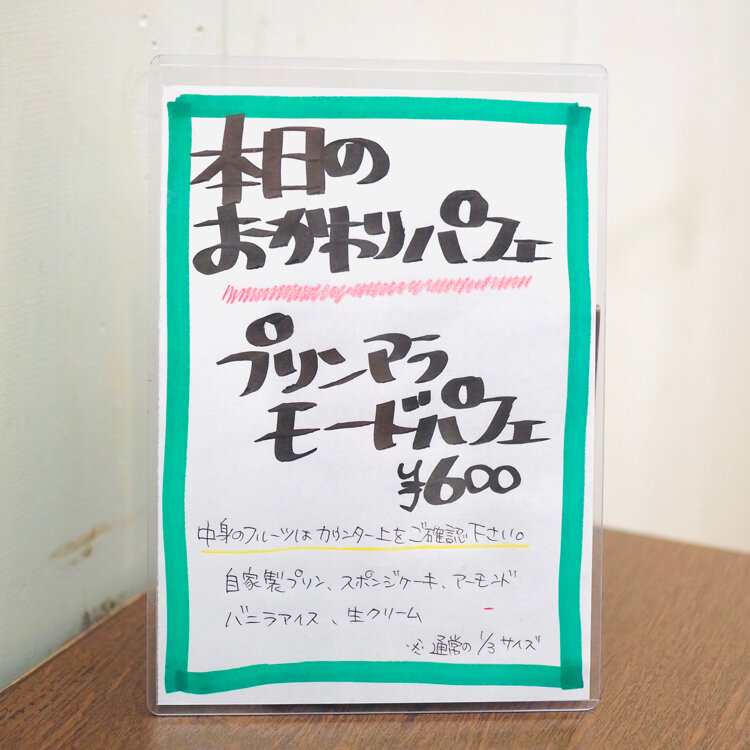 本日の
おかわりパフェ
プリンアラ
モードパフェ
¥600
中身のフルーツはカウンター上をご確認下さい。
自家製プリン、スポンジケーキ、アーモンド
バニラアイス、生クリーム
※通常の1/3サイズ